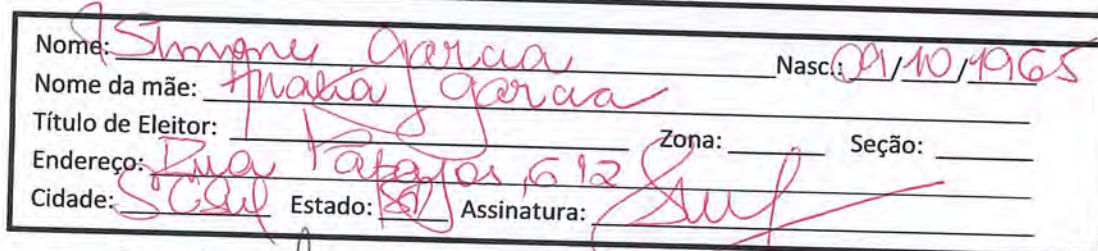 Nome: Simone Garcia Nasc.: 09/10/1965
Nome da mãe: Maria Garcia
Título de Eleitor: Zona: Seção:
Endereço: Rua Tapajós, 612
Cidade: S C Sul Estado: SP Assinatura: